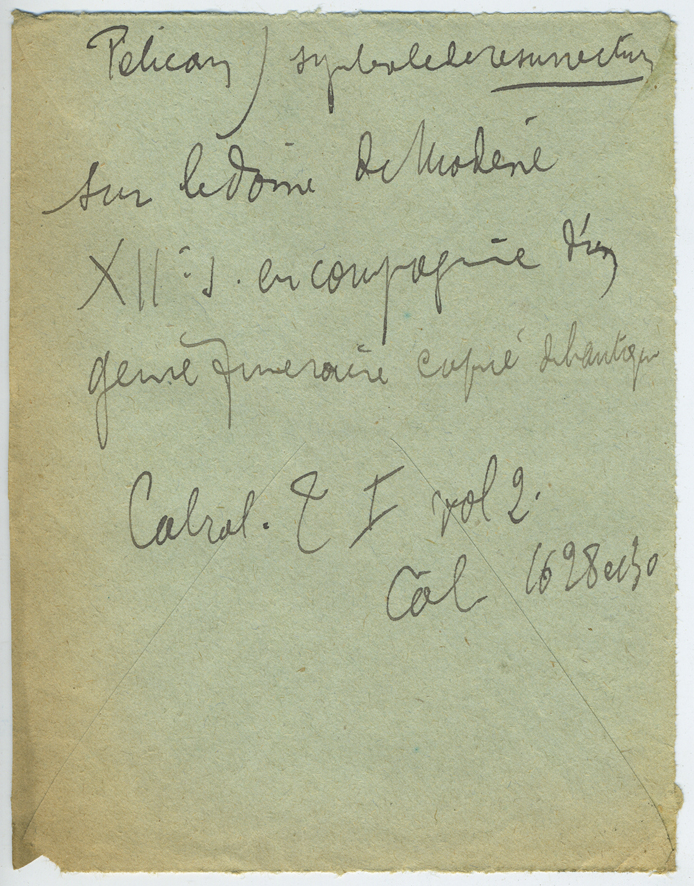 Pelican) symbole de resurrection
sur le dôme de Modène
XIIe s. en compagnie d'un
genie funeraire copié de l'antique
Cabrol. T I vol 2.
Col 1628 et 30